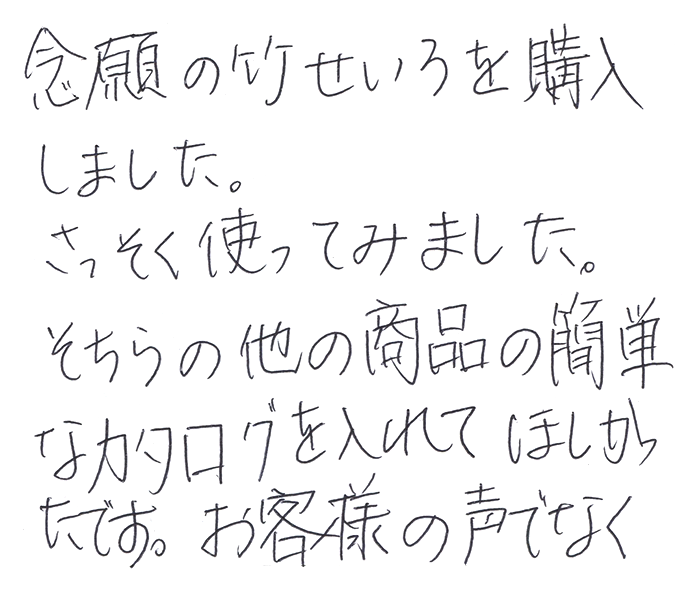 念願の竹せいろを購入
しました。
さっそく使ってみました。
そちらの他の商品の簡単
なカタログを入れてほしかっ
たです。お客様の声でなく